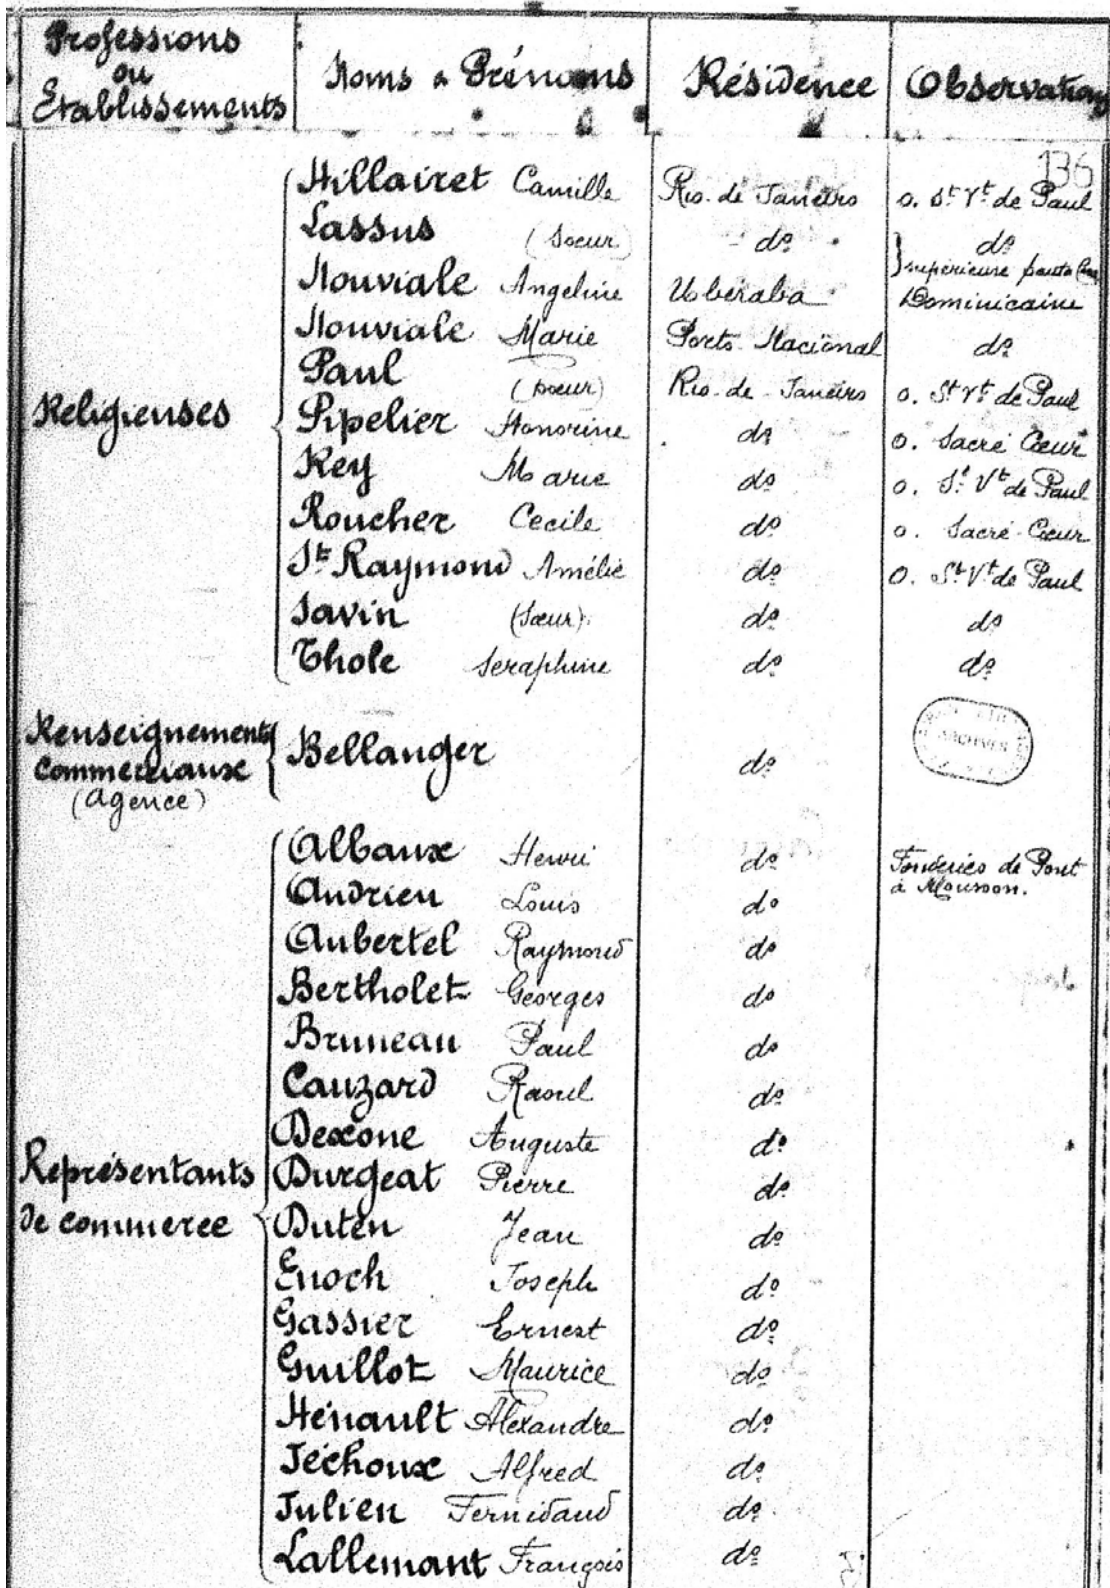 Professions ou Etablissements Noms & Prénoms Résidence Observations
136
Hillairet Camille Rio de Janeiro o. St Vt de Paul
Lassus (Soeur) do do
supérieure
Nouviale Angeline Uberaba Dominicaine
Nouviale Marie Porto Nacional do
Paul (soeur) Rio-de-Janeiro o. St Vt de Paul
Religieuses Pipelier Honorine do o. Sacré Cœur
Rey Marie do o. St Vt de Paul
Roucher Cecile do o. Sacré-Cœur
St Raymond Amélie do O. St Vt de Paul
Savin (Sœur) do do
Thole Seraphine do do
Renseignements commerciaux (Agence) Bellanger do
ARCHIVES
Albaux Henri do Fonderies de Pont à Mousson.
Andrieu Louis do
Aubertel Raymond do
Bertholet Georges do
Bruneau Paul do
Cauzard Raoul do
Dexone Auguste do
Représentants de commerce Durgeat Pierre do
Duten Jean do
Enoch Joseph do
Gassier Ernest do
Guillot Maurice do
Hénault Alexandre do
Jéchoux Alfred do
Julien do
Lallemant François do